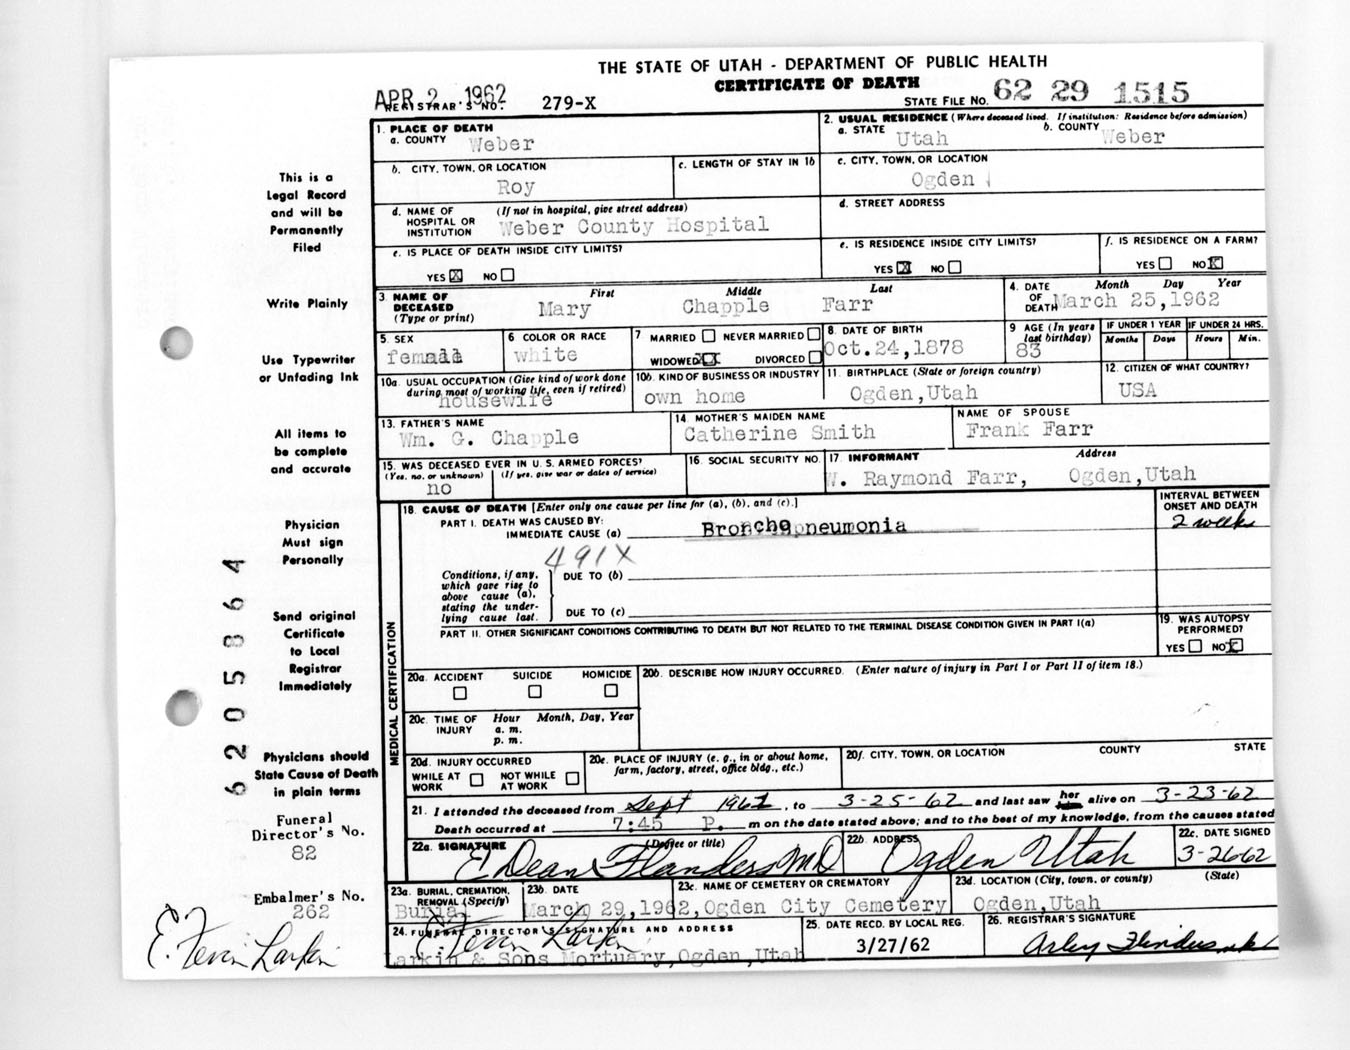 THE STATE OF UTAH - DEPARTMENT OF PUBLIC HEALTH
CERTIFICATE OF DEATH
APR 2 1962
REGISTRAR'S NO. 279-X
STATE FILE NO. 62 29 1515
1. PLACE OF DEATH
a. COUNTY Weber
2. USUAL RESIDENCE (Where deceased lived. If institution: Residence before admission)
a. STATE Utah b. COUNTY Weber
b. CITY, TOWN, OR LOCATION Roy
c. LENGTH OF STAY IN 1b
c. CITY, TOWN, OR LOCATION Ogden
d. NAME OF HOSPITAL OR INSTITUTION (If not in hospital, give street address) Weber County Hospital
d. STREET ADDRESS
e. IS PLACE OF DEATH INSIDE CITY LIMITS?
YES X NO
e. IS RESIDENCE INSIDE CITY LIMITS?
YES X NO
f. IS RESIDENCE ON A FARM?
YES NO X
3. NAME OF DECEASED (Type or print)
First Middle Last
Mary Chapple Farr
4. DATE OF DEATH Month Day Year
March 25, 1962
5. SEX female
6 COLOR OR RACE white
7 MARRIED NEVER MARRIED
WIDOWED XX DIVORCED
8. DATE OF BIRTH Oct. 24, 1878
9 AGE (In years last birthday) 83
IF UNDER 1 YEAR Months Days
IF UNDER 24 HRS. Hours Min.
10a. USUAL OCCUPATION (Give kind of work done during most of working life, even if retired) housewife
10b. KIND OF BUSINESS OR INDUSTRY own home
11. BIRTHPLACE (State or foreign country) Ogden, Utah
12. CITIZEN OF WHAT COUNTRY? USA
13. FATHER'S NAME Wm. G. Chapple
14. MOTHER'S MAIDEN NAME Catherine Smith
NAME OF SPOUSE Frank Farr
15. WAS DECEASED EVER IN U. S. ARMED FORCES?
(Yes, no, or unknown) (If yes, give war or dates of service)
no
16. SOCIAL SECURITY NO.
17. INFORMANT Address
W. Raymond Farr, Ogden, Utah
18. CAUSE OF DEATH [Enter only one cause per line for (a), (b), and (c).]
INTERVAL BETWEEN ONSET AND DEATH
PART I. DEATH WAS CAUSED BY:
IMMEDIATE CAUSE (a) Bronchopneumonia 2 weeks
491X
Conditions, if any, which gave rise to above cause (a), stating the underlying cause last.
DUE TO (b)
DUE TO (c)
PART II. OTHER SIGNIFICANT CONDITIONS CONTRIBUTING TO DEATH BUT NOT RELATED TO THE TERMINAL DISEASE CONDITION GIVEN IN PART I(a)
19. WAS AUTOPSY PERFORMED?
YES NO X
MEDICAL CERTIFICATION
20a. ACCIDENT SUICIDE HOMICIDE
20b. DESCRIBE HOW INJURY OCCURRED. (Enter nature of injury in Part I or Part II of item 18.)
20c. TIME OF INJURY Hour Month, Day, Year
a. m.
p. m.
20d. INJURY OCCURRED
WHILE AT WORK NOT WHILE AT WORK
20e. PLACE OF INJURY (e. g., in or about home, farm, factory, street, office bldg., etc.)
20f. CITY, TOWN, OR LOCATION COUNTY STATE
21. I attended the deceased from Sept 1961, to 3-25-62 and last saw her alive on 3-23-62
Death occurred at 7:45 P. m on the date stated above; and to the best of my knowledge, from the causes stated
22a. SIGNATURE (Degree or title) E. Dean Flanders MD
22b. ADDRESS Ogden Utah
22c. DATE SIGNED 3-26-62
23a. BURIAL, CREMATION, REMOVAL (Specify) Burial
23b. DATE March 29, 1962,
23c. NAME OF CEMETERY OR CREMATORY Ogden City Cemetery
23d. LOCATION (City, town, or county) (State) Ogden, Utah
24. FUNERAL DIRECTOR'S SIGNATURE AND ADDRESS
Larkin & Sons Mortuary, Ogden, Utah
25. DATE RECD. BY LOCAL REG.
3/27/62
26. REGISTRAR'S SIGNATURE
This is a
Legal Record
and will be
Permanently
Filed
Write Plainly
Use Typewriter
or Unfading Ink
All items to
be complete
and accurate
Physician
Must sign
Personally
Send original
Certificate
to Local
Registrar
Immediately
Physicians should
State Cause of Death
in plain terms
Funeral
Director's No.
82
Embalmer's No.
262
6205864